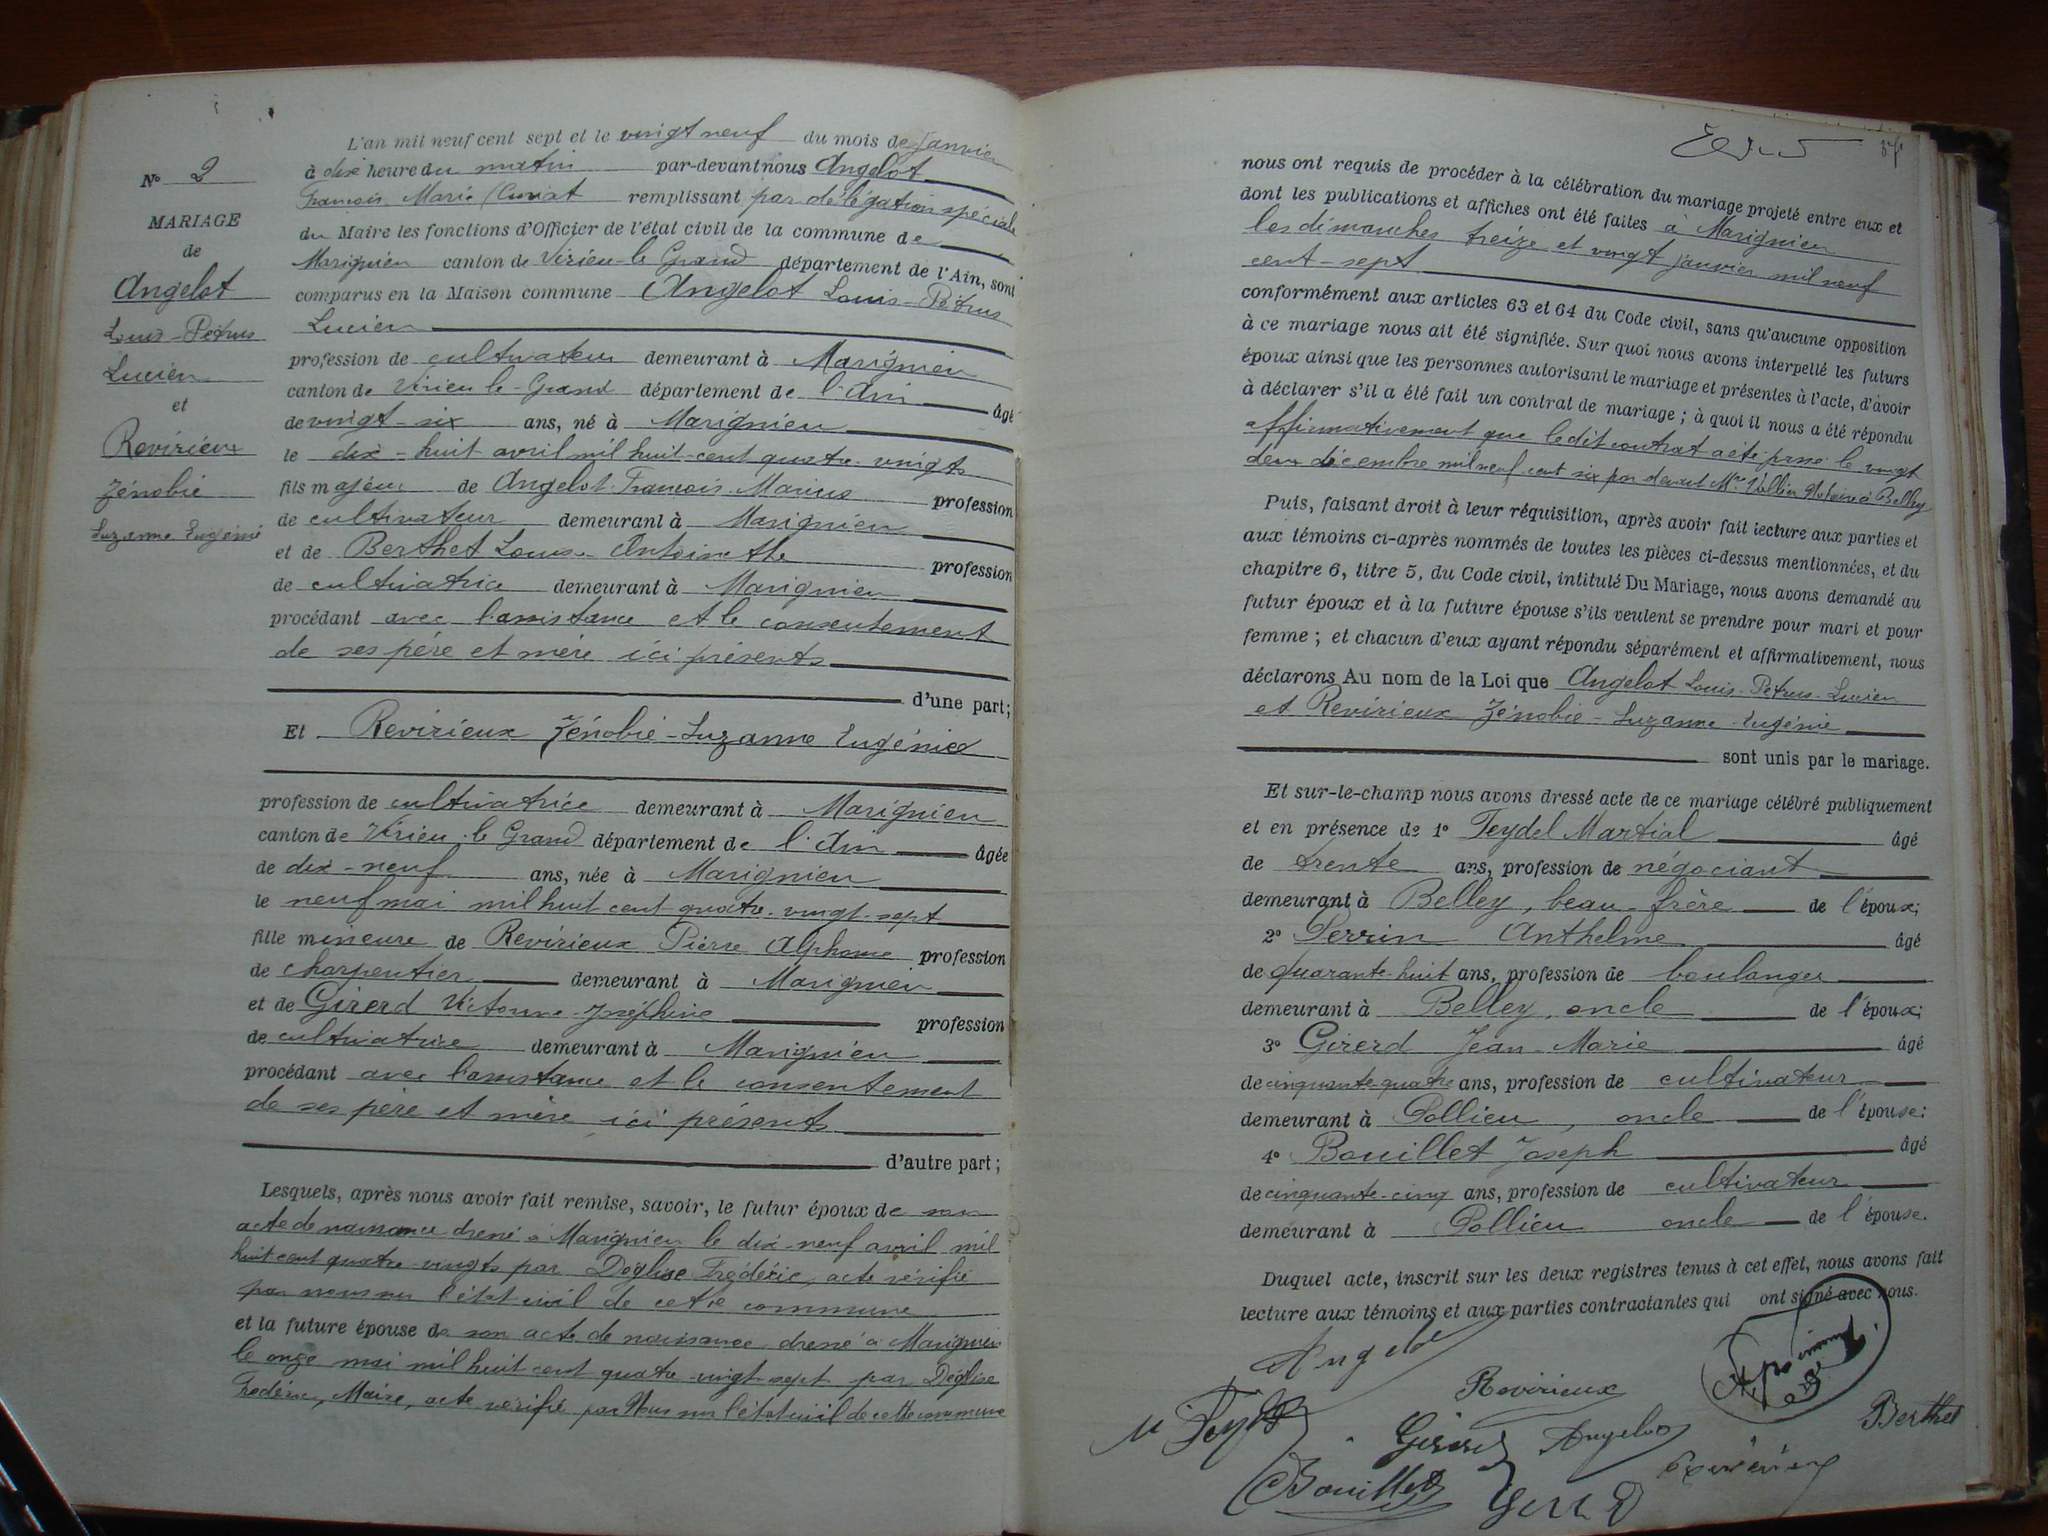 L'an mil neuf cent sept et le vingt neuf du mois de Janvier
à dix heure du matin par-devant nous Angelot
François Marie remplissant par délégation spéciale
du Maire les fonctions d'Officier de l'état civil de la commune de
Marignieu canton de Virieu-le-Grand département de l'Ain, sont
comparus en la Maison commune Angelot Louis-Pétrus
Lucien
profession de cultivateur demeurant à Marignieu
canton de Virieu le-Grand département de l'Ain âgé
de vingt-six ans, né à Marignieu
le dix-huit avril mil huit-cent quatre-vingts
fils majeur de Angelot François Marius profession
de cultivateur demeurant à Marignieu
et de Berthet Louise Antoinette profession
de cultivatrice demeurant à Marignieu
procédant avec l'assistance et le consentement
de ses père et mère ici présents
d'une part;
Et Revirieux Zénobie-Suzanne Eugénie
profession de cultivatrice demeurant à Marignieu
canton de Virieu-le Grand département de l'Ain âgée
de dix-neuf ans, née à Marignieu
le neuf mai mil huit cent quatre-vingt-sept
fille mineure de Revirieux Pierre Alphonse profession
de charpentier demeurant à Marignieu
et de Girerd Victorine-Joséphine profession
de cultivatrice demeurant à Marignieu
procédant avec l'assistance et le consentement
de ses père et mère ici présents
d'autre part;
Lesquels, après nous avoir fait remise, savoir, le futur époux de son
acte de naissance dressé à Marignieu le dix-neuf avril mil
huit cent quatre-vingts par Déglise Frédéric, acte vérifié
par nous sur l'état civil de cette commune
et la future épouse de son acte de naissance dressé à Marignieu
le onze mai mil huit cent quatre vingt sept par Déglise
Frédéric, Maire, acte vérifié par Nous sur l'état civil de cette commune
No 2
MARIAGE
de
Angelot
Louis-Pétrus
Lucien
et
Revirieux
Zénobie
Suzanne Eugénie
nous ont requis de procéder à la célébration du mariage projeté entre eux et
dont les publications et affiches ont été faites à Marignieu
les dimanches treize et vingt janvier mil neuf
cent-sept
conformément aux articles 63 et 64 du Code civil, sans qu'aucune opposition
à ce mariage nous ait été signifiée. Sur quoi nous avons interpellé les futurs
époux ainsi que les personnes autorisant le mariage et présentes à l'acte, d'avoir
à déclarer s'il a été fait un contrat de mariage; à quoi il nous a été répondu
affirmativement que ledit contrat a été passé le vingt
deux décembre mil neuf cent six par devant Me Vollier Notaire à Belley
Puis, faisant droit à leur réquisition, après avoir fait lecture aux parties et
aux témoins ci-après nommés de toutes les pièces ci-dessus mentionnées, et du
chapitre 6, titre 5, du Code civil, intitulé Du Mariage, nous avons demandé au
futur époux et à la future épouse s'ils veulent se prendre pour mari et pour
femme; et chacun d'eux ayant répondu séparément et affirmativement, nous
déclarons Au nom de la Loi que Angelot Louis-Pétrus-Lucien
et Revirieux Zénobie-Suzanne-Eugénie
sont unis par le mariage.
Et sur-le-champ nous avons dressé acte de ce mariage célébré publiquement
et en présence de 1o Teydel Martial âgé
de trente ans, profession de négociant
demeurant à Belley, beau-frère de l'époux;
2o Serrin Anthelme âgé
de quarante-huit ans, profession de boulanger
demeurant à Belley, oncle de l'époux;
3o Girerd Jean-Marie âgé
de cinquante-quatre ans, profession de cultivateur
demeurant à Pollieu, oncle de l'épouse;
4o Bouillet Joseph âgé
de cinquante-cinq ans, profession de cultivateur
demeurant à Pollieu oncle de l'épouse.
Duquel acte, inscrit sur les deux registres tenus à cet effet, nous avons fait
lecture aux témoins et aux parties contractantes qui ont signé avec nous.
Angelot
Revirieux
Girerd
Angelot
Berthet
Bouillet